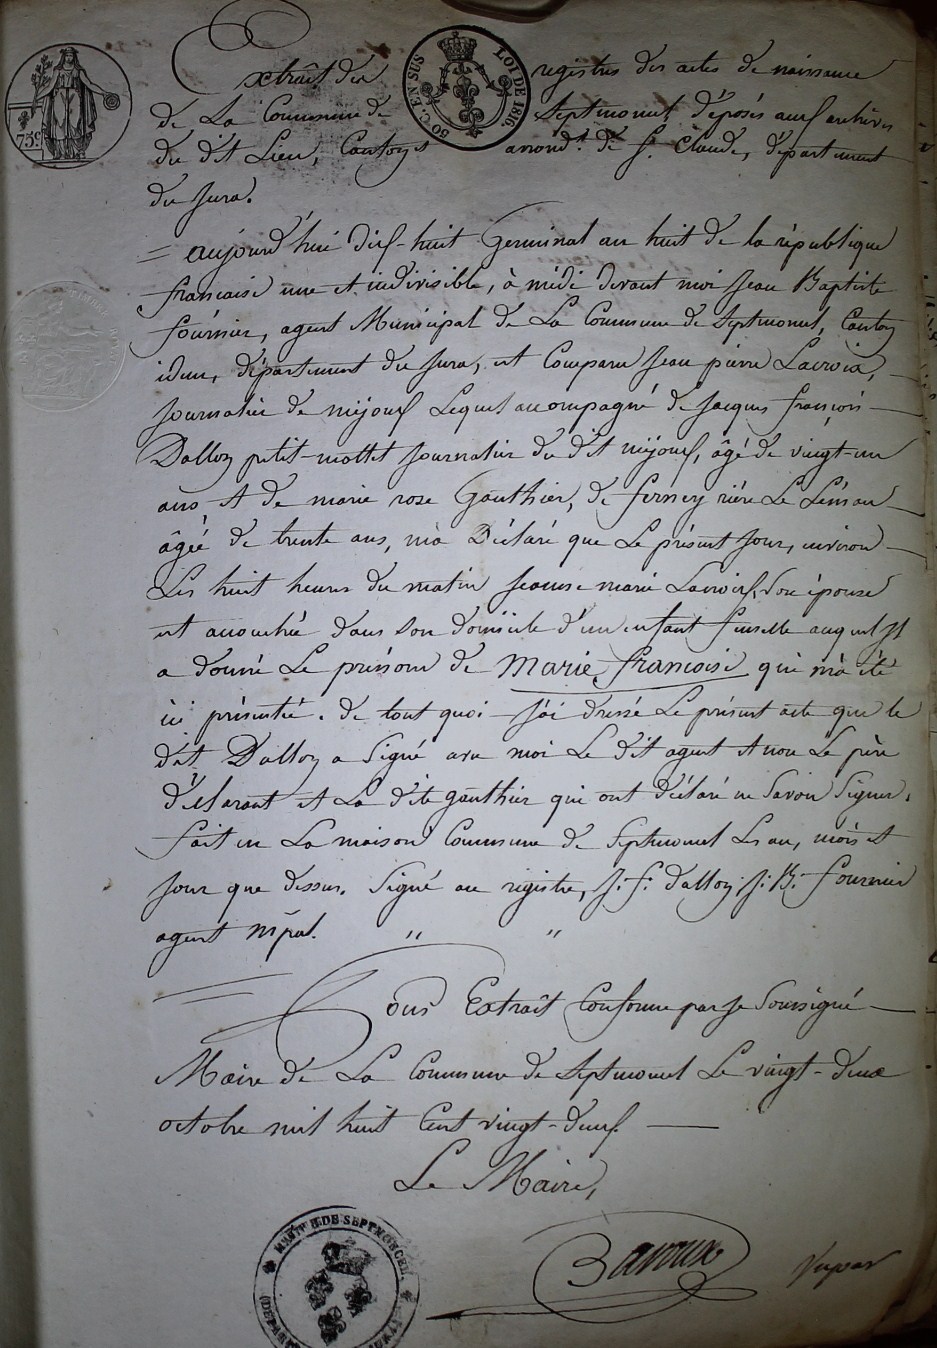 75c
50 C. EN SUS LOI DE 1816.
Extrait des registres des actes de naissance
de La Commune de Septmoncel déposés aux archives
du dit Lieu, Canton et arrond.t de St. Claude, département
du Jura.
= aujourd'hui dix-huit Germinal an huit de la république
francaise une et indivisible, à midi devant moi Jean Baptiste
fournier, agent Municipal de La Commune de Septmoncel, Canton
idem, département du Jura, est Comparu Jean pierre Lacroix,
Journalier de mijoux Lequel accompagné de Jacques françois
Dalloz petit-mottet Journalier du dit mijoux, âgé de vingt-un
ans et de marie rose Gauthier, de ferney rière Le Léman
âgée de trente ans, m'a Déclaré que Le présent Jour, environ
Les huit heures du matin Jeanne marie Lacroix, Son épouse
est accouchée dans Son domicile d'un enfant femelle auquel Il
a donné Le prénom de Marie francoise qui m'a été
ici présentée. de tout quoi J'ai dressé Le présent acte que le
dit Dalloz a Signé avec moi Le dit agent et non Le père
déclarant et La dite gauthier qui ont déclaré ne Savoir Signer.
fait en La maison Commune de Septmoncel Les an, mois et
Jour que dessus. Signé au registre, J. f. dalloz, J. B. fournier
agent mpal. " "
Pour Extrait Conforme par Je Soussigné
Maire de La Commune de Septmoncel Le vingt-deux
octobre mil huit Cent vingt-deux.
Le Maire,
MAIRIE DE SEPTMONCEL